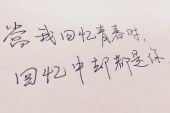 当我回忆青春时,
回忆中却都是你.